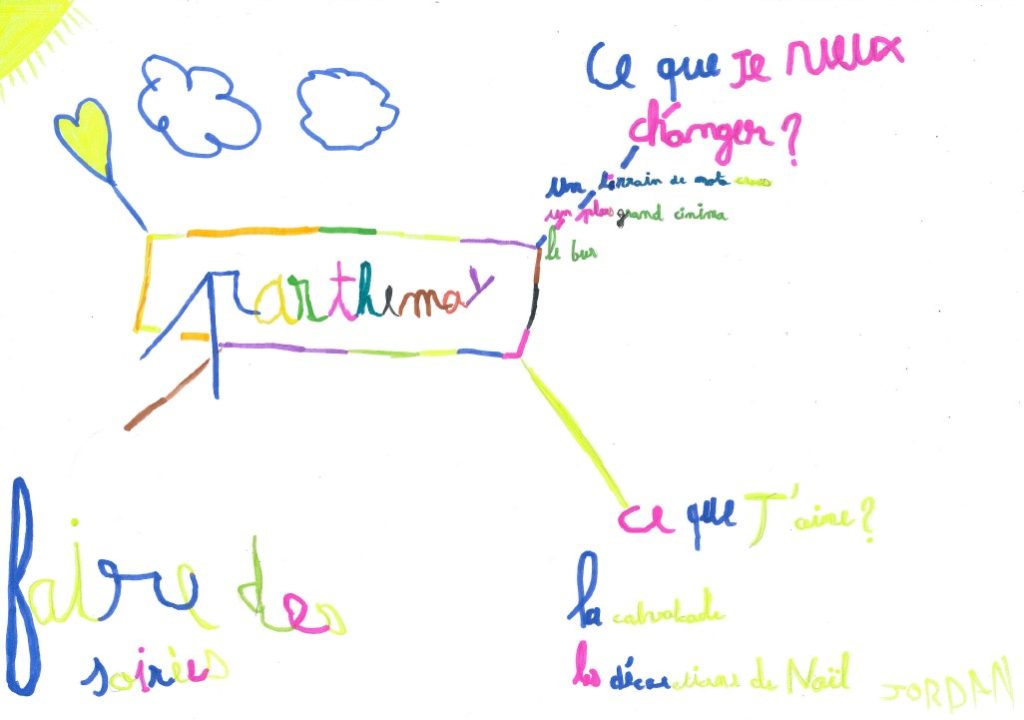 Ce que Je veux
changer ?
un terrain de moto cross
un plus grand cinima
le bus
Parthenay
Ce que J'aime ?
la calvakade
les décorations de Noël
faire des
soirées
JORDAN